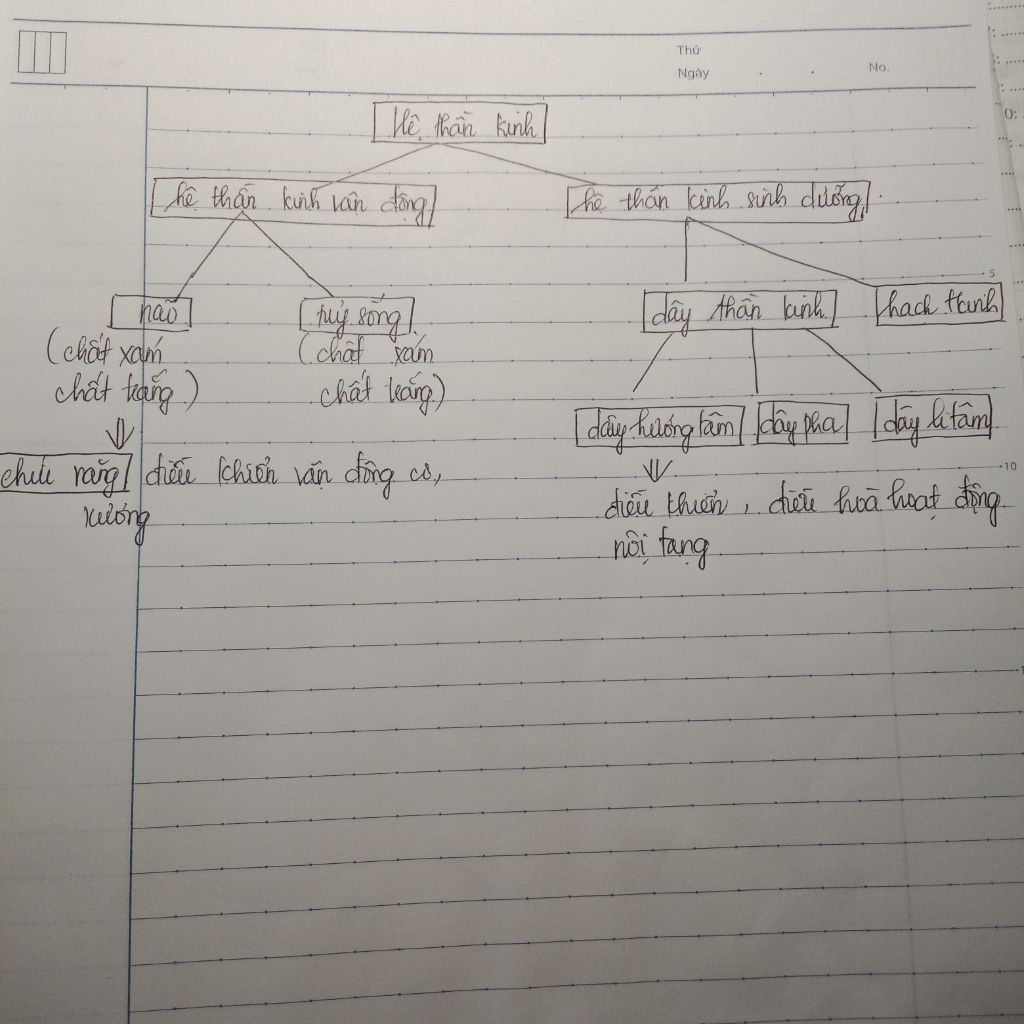 Thứ
Ngày . . No.
Hệ thần kinh
hệ thần kinh vận động
hệ thần kinh sinh dưỡng
não
tuỷ sống
dây thần kinh
hạch tkinh
(chất xám
chất trắng)
(chất xám
chất trắng)
dây hướng tâm
dây pha
dây li tâm
5
chức năng
điều khiển vận động cơ,
xương
điều khiển, điều hoà hoạt động
nội tạng
10